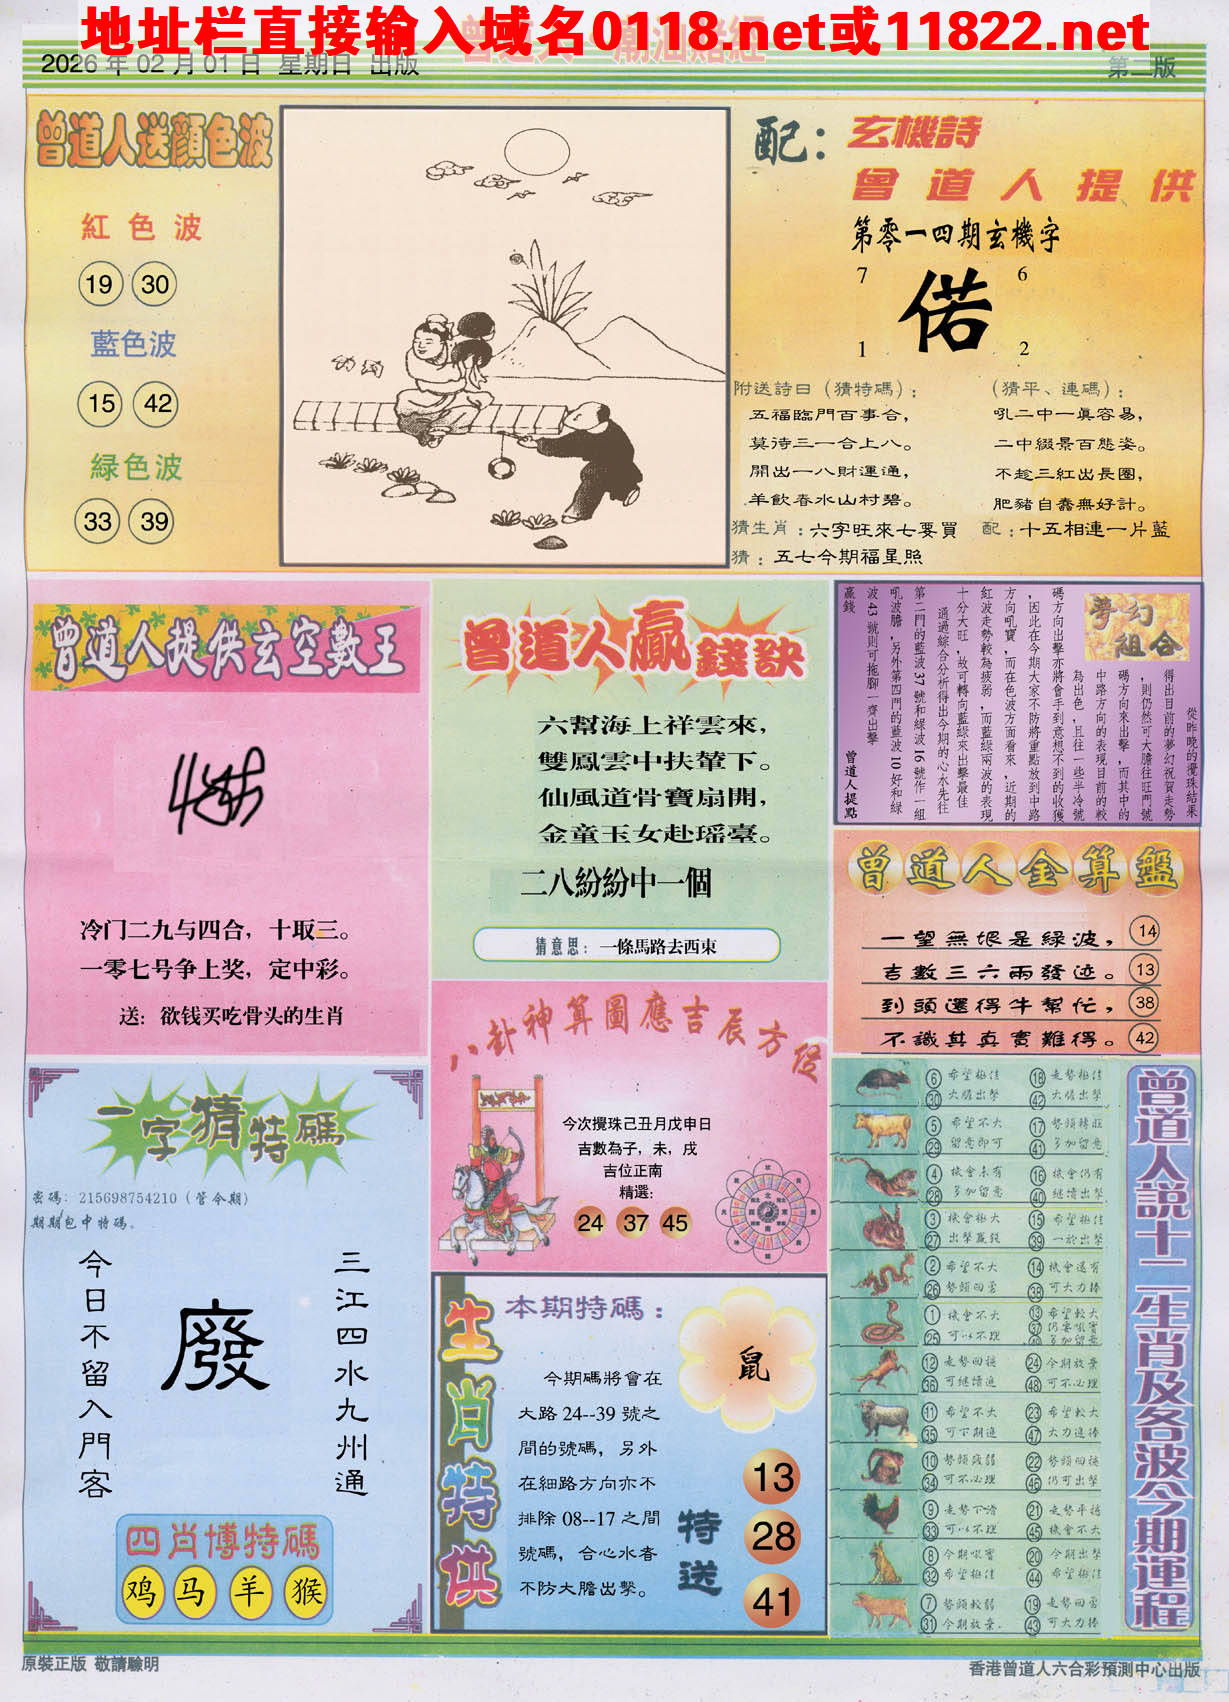 地址栏直接输入域名0118.net或11822.net
2026 年 02 月 01 日 星期日 出版
第二版
曾道人送顔色波
紅色波
19 30
藍色波
15 42
緑色波
33 39
配：
玄機詩
曾道人提供
第零一四期玄機字
7 6
偌
1 2
附送詩曰（猜特碼）：
五福臨門百事合，
莫待三一合上八。
開出一八財運通，
羊飲春水山村碧。
（猜平、連碼）：
吼二中一真容易，
二中綴景百態姿。
不趁三紅出長圈，
肥豬自蠢無好計。
猜生肖：六字旺來七要買
配：十五相連一片藍
猜：五七今期福星照
曾道人提供玄空數王
冷门二九与四合，十取三。
一零七号争上奖，定中彩。
送：欲钱买吃骨头的生肖
曾道人贏錢訣
六幫海上祥雲來，
雙鳳雲中扶輦下。
仙風道骨寶扇開，
金童玉女赴瑶臺。
二八紛紛中一個
猜意思：一條馬路去西東
夢幻
組合
從昨晚的攪珠結果
得出目前的夢幻祝賀走勢
，則仍然可大膽往旺門號
碼方向來出擊，而其中的
中路方向的表現目前的較
為出色，且往一些半冷號
碼方向出擊亦將會手到意想不到的收獲
，因此在今期大家不防將重點放到中路
方向吼寶，而在色波方面看來，近期的
紅波走勢較為疲弱，而藍綠兩波的表現
十分大旺，故可轉向藍綠來出擊最佳
通過綜合分析得出今期的心水先往
第二門的藍波 37 號和綠波 16 號作一組
吼波膽，另外第四門的藍波 10 好和綠
波 43 號則可拖腳一齊出擊
贏錢
曾道人提點
曾道人金算盤
一望無垠是緑波， 14
吉數三六兩發迹。 13
到頭還得牛幫忙， 38
不識其真實難得。 42
一字猜特碼
密碼：215698754210（管今期）
期期包中特碼。
三江四水九州通
廢
今日不留入門客
四肖博特碼
鸡 马 羊 猴
八卦神算圖應吉辰方位
今次攪珠己丑月戊申日
吉數為子，未，戌
吉位正南
精選：
24 37 45
生肖特供
本期特碼：
鼠
今期碼將會在
大路 24--39 號之
間的號碼，另外
在細路方向亦不
排除 08--17 之間
號碼，合心水者
不防大膽出擊。
特送
13
28
41
曾道人説十二生肖及各波今期運程
6 希望極佳 18 走勢極佳
30 大膽出擊 42 大膽出擊
5 希望不大 17 勢頭轉旺
29 留意即可 41 多加留意
4 機會未有 16 機會仍有
28 多加留意 40 繼續出擊
3 機會極大 15 希望極佳
27 出擊贏錢 39 一於出擊
2 希望不大 14 機會還有
26 勢頭回落 38 可大力捧
1 機會不大 13 希望較大
25 可以不理 37
12 走勢回穩 24 今期放棄
36 可繼續追 48 可不必理
11 希望不大 23 希望較大
35 可下期追 47 大力追捧
10 勢頭疲弱 22 勢頭回穩
34 可不必理 46 仍可出擊
9 走勢下滑 21 走勢平穩
33 可以不理 45 機會不大
8 今期吼寶 20 今期出擊
32 希望極佳 44 希望極佳
7 勢頭較弱 19 走勢回落
31 今期放棄 43 可大力捧
原裝正版 敬請驗明
香港曾道人六合彩預測中心出版